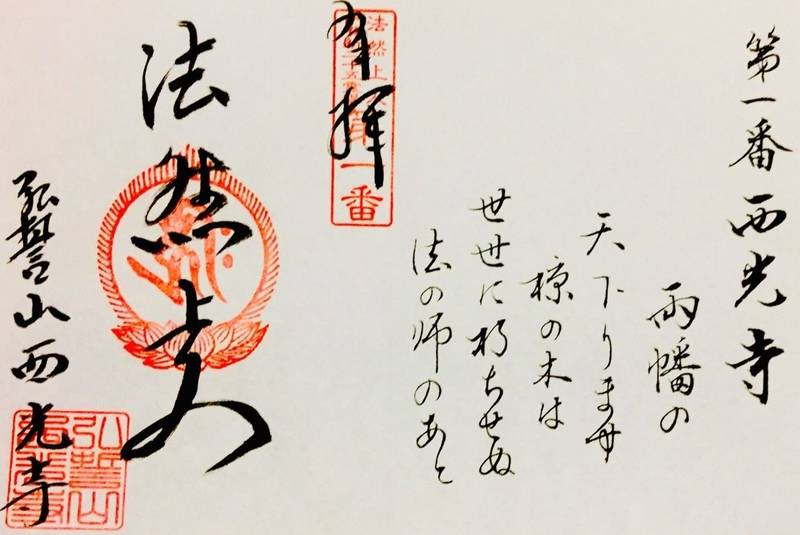 第一番西光寺
両幡の
天下ります
椋の木は
世世に朽ちせぬ
法の師のあと
奉拝
法然上
第一番
法然上人
弘誓山西光寺
弘誓山